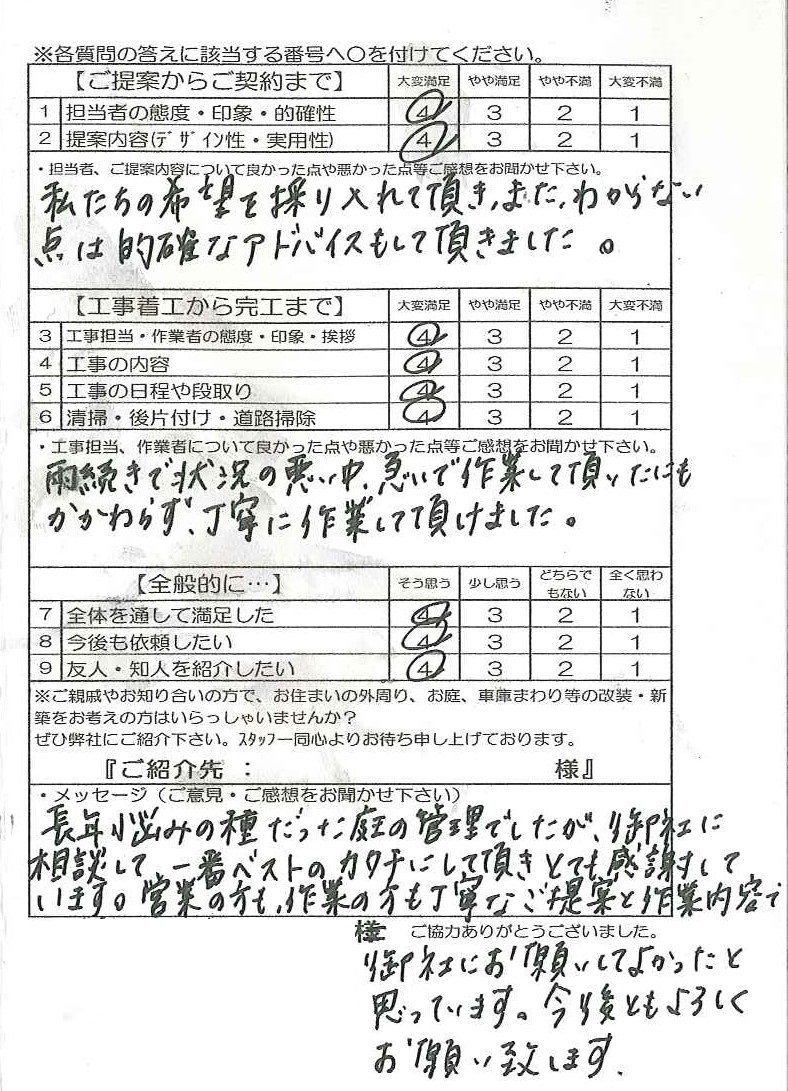 ※各質問の答えに該当する番号へ〇を付けてください。
【ご提案からご契約まで】 大変満足 やや満足 やや不満 大変不満
1 担当者の態度・印象・的確性 4 3 2 1
2 提案内容(ﾃﾞｻﾞｲﾝ性・実用性) 4 3 2 1
・担当者、ご提案内容について良かった点や悪かった点等ご感想をお聞かせ下さい。
私たちの希望を採り入れて頂き、また、わからない
点は的確なアドバイスもして頂きました。
【工事着工から完工まで】 大変満足 やや満足 やや不満 大変不満
3 工事担当・作業者の態度・印象・挨拶 4 3 2 1
4 工事の内容 4 3 2 1
5 工事の日程や段取り 4 3 2 1
6 清掃・後片付け・道路掃除 4 3 2 1
・工事担当、作業者について良かった点や悪かった点等ご感想をお聞かせ下さい。
雨続きで状況の悪い中、急いで作業して頂いたにも
かかわらず、丁寧に作業して頂けました。
【全般的に…】 そう思う 少し思う どちらで もない 全く思わ ない
7 全体を通して満足した 4 3 2 1
8 今後も依頼したい 4 3 2 1
9 友人・知人を紹介したい 4 3 2 1
※ご親戚やお知り合いの方で、お住まいの外周り、お庭、車庫まわり等の改装・新
築をお考えの方はいらっしゃいませんか？
ぜひ弊社にご紹介下さい。ｽﾀｯﾌ一同心よりお待ち申し上げております。
『ご紹介先： 様』
・メッセージ（ご意見・ご感想をお聞かせ下さい）
長年小悩みの種だった庭の管理でしたが、御社に
相談して、一番ベストのカタチにして頂きとても感謝して
います。営業の方も、作業の方も丁寧なご提案と作業内容で
様 ご協力ありがとうございました。
御社にお願いしてよかったと
思っています。今後ともよろしく
お願い致します。